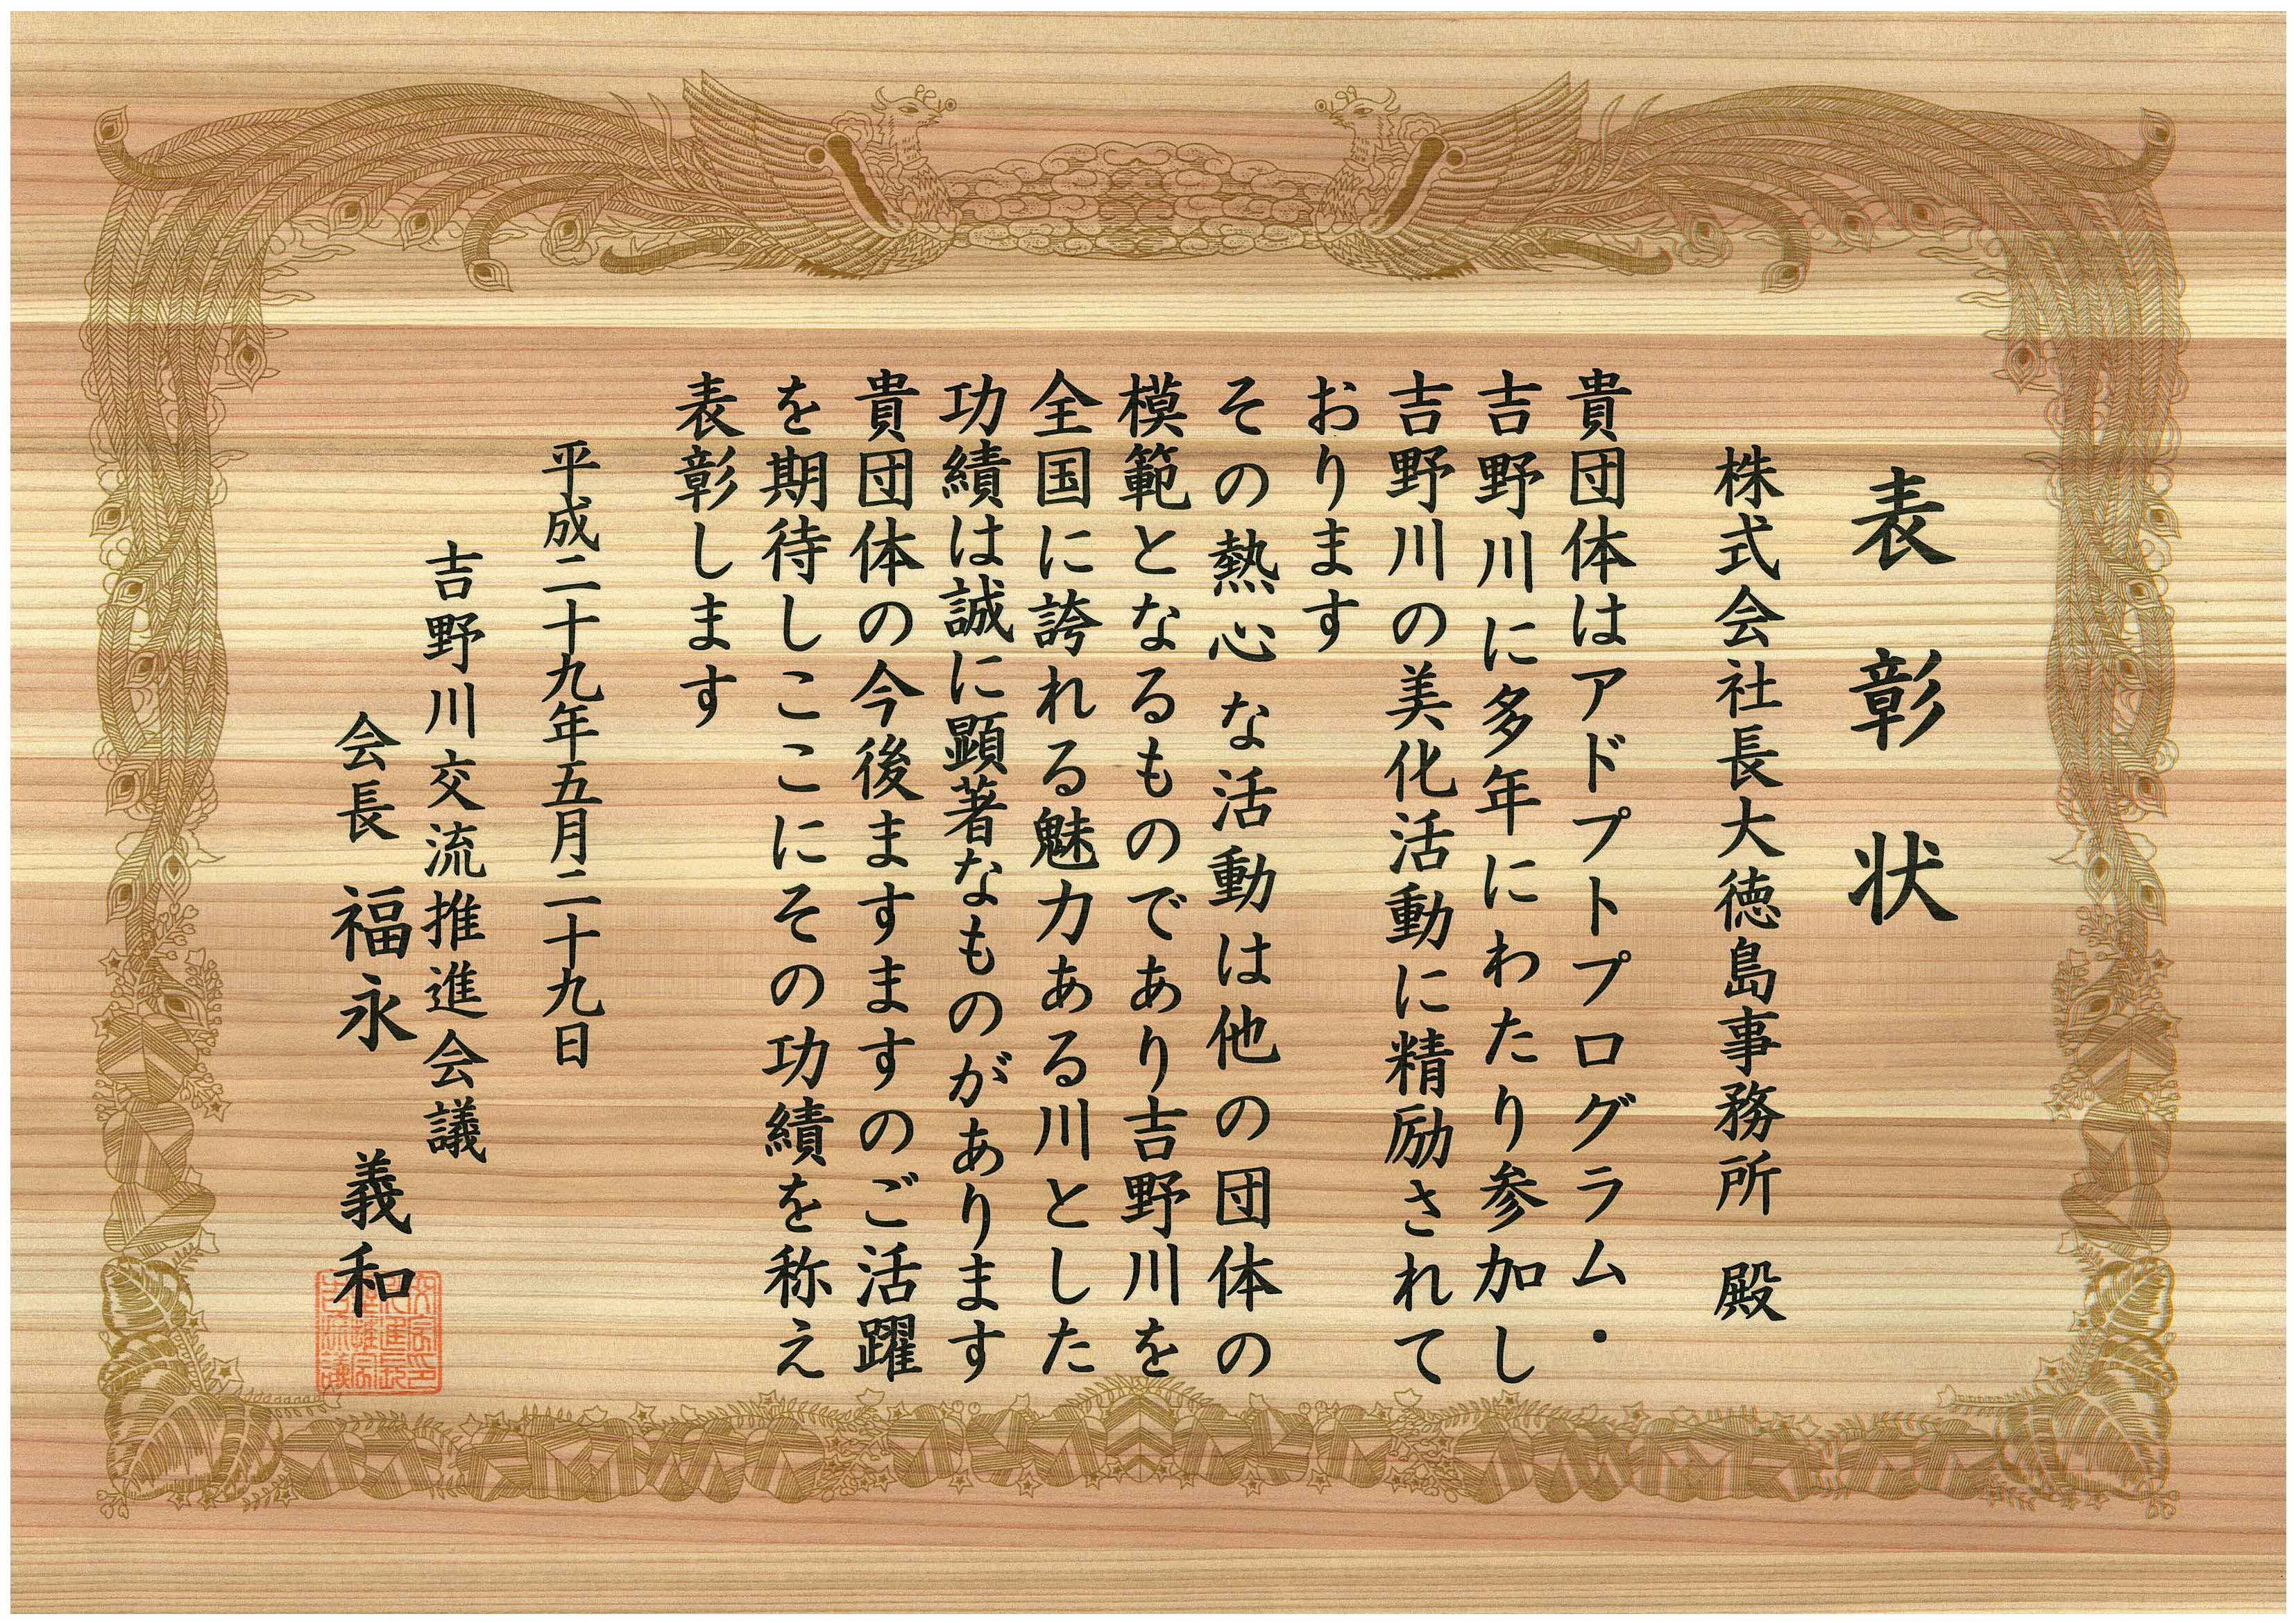 表彰状
株式会社長大徳島事務所 殿
貴団体はアドプトプログラム・
吉野川に多年にわたり参加し
吉野川の美化活動に精励されて
おります
その熱心な活動は他の団体の
模範となるものであり吉野川を
全国に誇れる魅力ある川とした
功績は誠に顕著なものがあります
貴団体の今後ますますのご活躍
を期待しここにその功績を称え
表彰します
平成二十九年五月二十九日
吉野川交流推進会議
会長 福永 義和